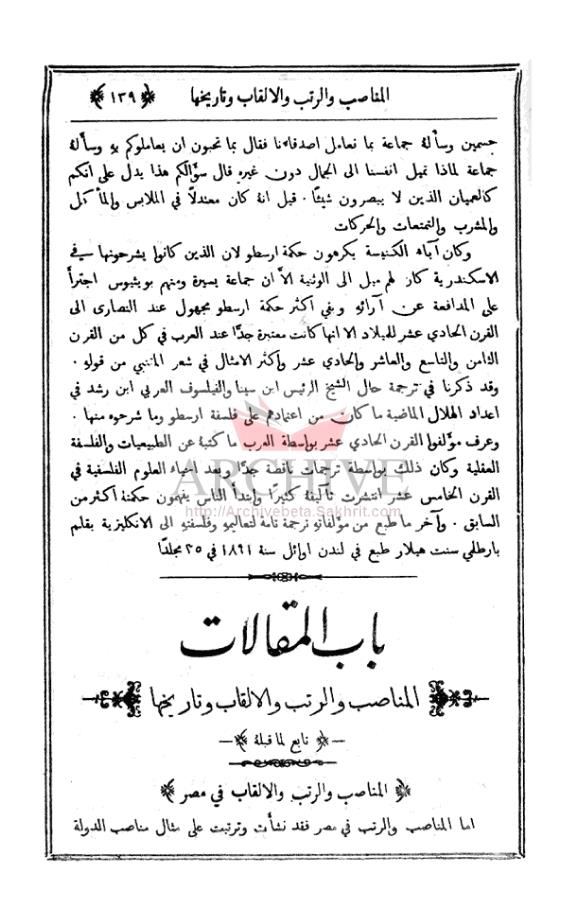 المناصب والرتب والالقاب وتاريخها ﴿١٣٩﴾
جسمين وسألهُ جماعة بما نعامل اصدقاءنا فقال بما تحبون ان يعاملوكم بهِ وسألهُ
جماعة لماذا نميل انفسنا الى الجمال دون غيرهِ قال سؤالكم هذا يدل على انكم
كالعميان الذين لا يبصرون شيئًا . قيل انهُ كان معتدلًا في الملابس والمأكل
والمشرب والتمتعات والحركات
وكان آباء الكنيسة يكرهون حكمة ارسطو لان الذين كانوا يشرحونها في
الاسكندرية كان لهم ميل الى الوثنية الَّا ان جماعة يسيرة ومنهم بويثيوس اجترأ
على المدافعة عن آرائهِ وبقي اكثر حكمة ارسطو مجهول عند النصارى الى
القرن الحادي عشر للميلاد الا انها كانت معتبرة جدًّا عند العرب في كل من القرن
الثامن والتاسع والعاشر والحادي عشر واكثر الامثال في شعر المتنبي من قولهِ .
وقد ذكرنا في ترجمة حال الشيخ الرئيس ابن سينا والفيلسوف العربي ابن رشد في
اعداد الهلال الماضية ما كان من اعتمادهم على فلسفة ارسطو وما شرحوه منها .
وعرف مؤلفوا القرن الحادي عشر بواسطة العرب ما كتبهُ عن الطبيعيات والفلسفة
العقلية وكان ذلك بواسطة ترجمات ناقصة جدًّا وبعد احياء العلوم الفلسفية في
القرن الخامس عشر انتشرت تآليفهُ كثيرًا وابتدأ الناس يفهمون حكمتهُ اكثر من
السابق . وآخر ما طبع من مؤلفاتهِ ترجمة تامة لتعاليمهِ وفلسفتهِ الى الانكليزية بقلم
بارطلي سنت هيلار طبع في لندن اوائل سنة ١٨٩١ في ٣٥ مجلدًا
ARCHIVE
http://Archivebeta.Sakhrit.com
باب المقالات
المناصب والرتب والالقاب وتاريخها
﴿ تابع لما قبلهُ ﴾
﴿ المناصب والرتب والالقاب في مصر ﴾
اما المناصب والرتب في مصر فقد نشأت وترتبت على مثال مناصب الدولة